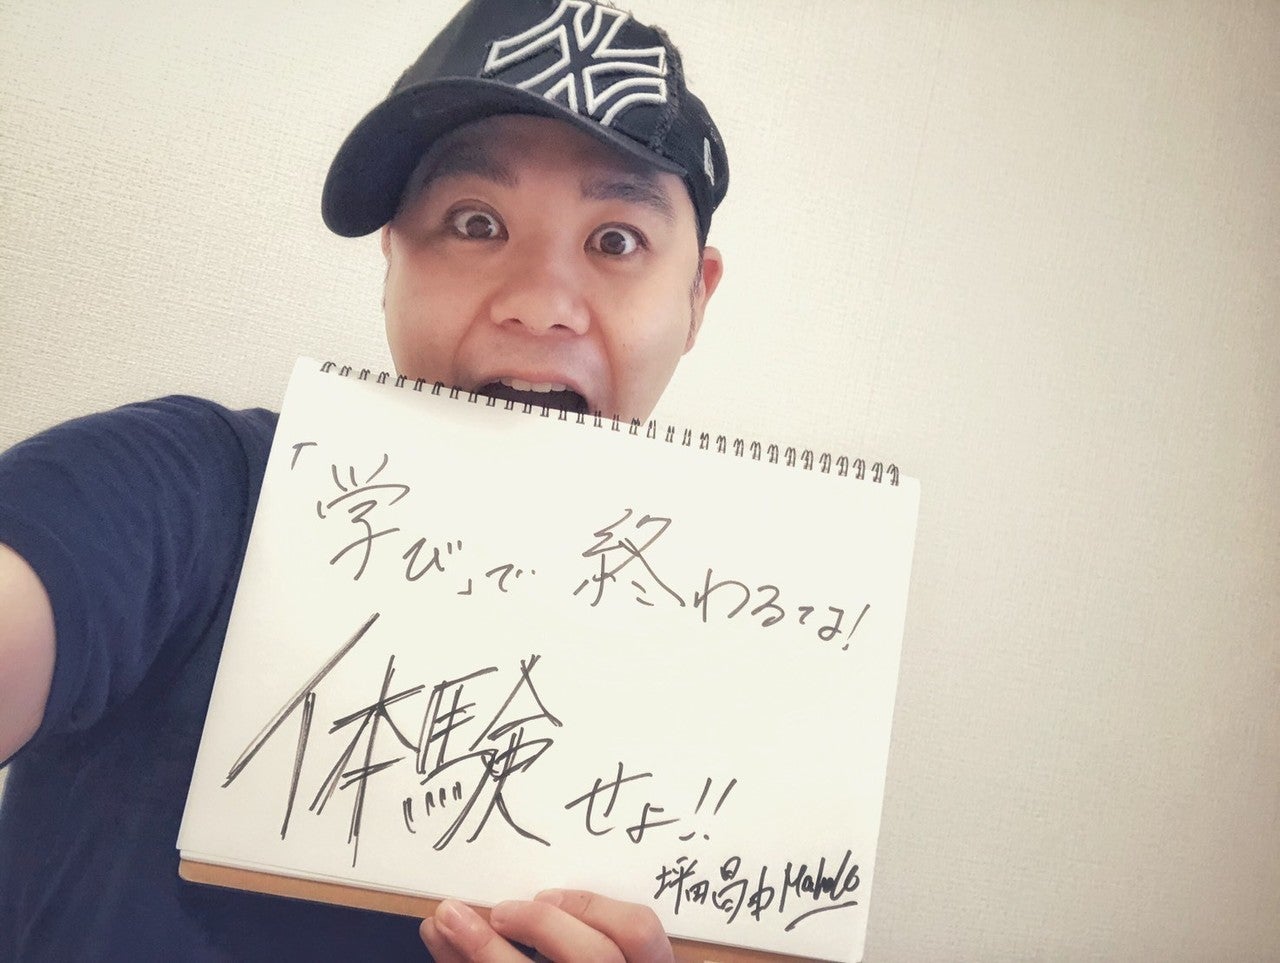 「学び」で 終わるな！
体験せよ！！
坪田昌也